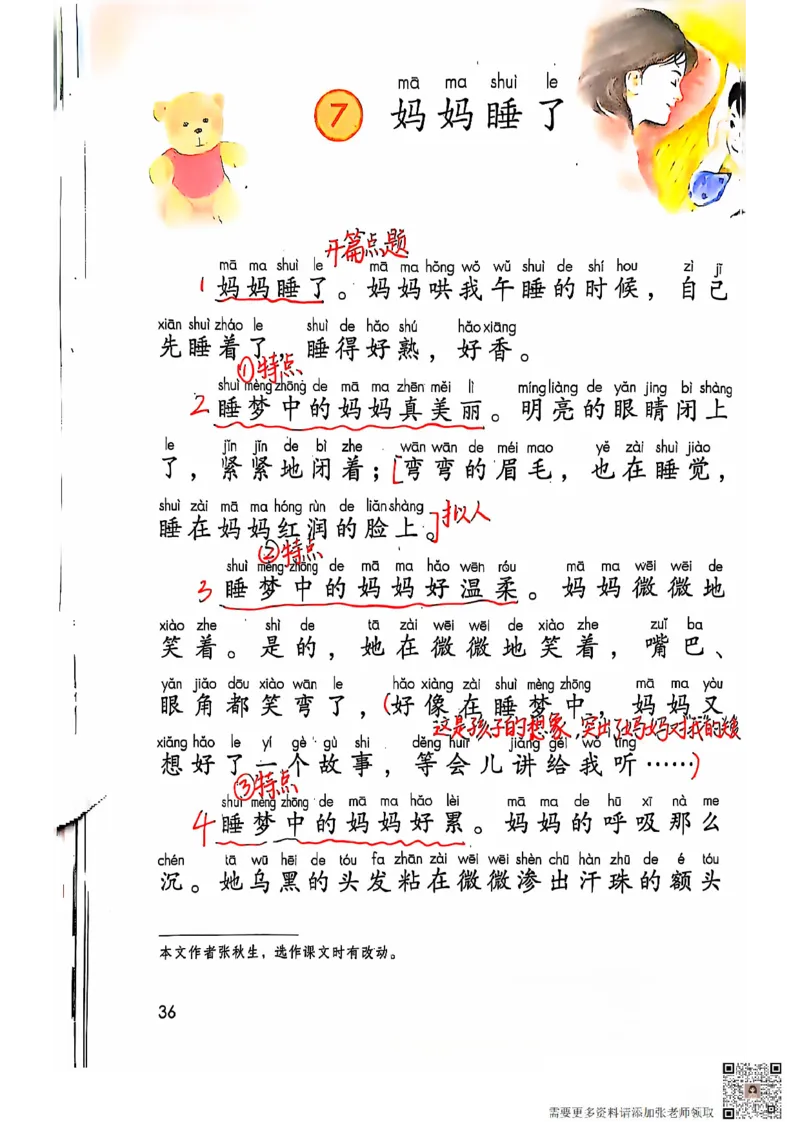 mā ma shuì le
7 妈妈睡了
开篇点题
mā ma shuì le mā ma hǒng wǒ wǔ shuì de shí hou zì jǐ
1 妈妈睡了。妈妈哄我午睡的时候，自己
xiān shuì zháo le shuì de hǎo shú hǎo xiāng
先睡着了，睡得好熟，好香。
①特点
shuì mèng zhōng de mā ma zhēn měi lì míng liàng de yǎn jing bì shàng
2 睡梦中的妈妈真美丽。明亮的眼睛闭上
le jǐn jǐn de bì zhe wān wān de méi mao yě zài shuì jiào
了，紧紧地闭着；[弯弯的眉毛，也在睡觉，
shuì zài mā ma hóng rùn de liǎn shàng
睡在妈妈红润的脸上。]拟人
②特点
shuì mèng zhōng de mā ma hǎo wēn róu mā ma wēi wēi de
3 睡梦中的妈妈好温柔。妈妈微微地
xiào zhe shì de tā zài wēi wēi de xiào zhe zuǐ ba
笑着。是的，她在微微地笑着，嘴巴、
yǎn jiǎo dōu xiào wān le hǎo xiàng zài shuì mèng zhōng mā ma yòu
眼角都笑弯了，(好像在睡梦中，妈妈又
这是孩子的想象，突出了妈妈对"我"的关爱
xiǎng hǎo le yí gè gù shi děng huìr jiǎng gěi wǒ tīng
想好了一个故事，等会儿讲给我听……)
③特点
shuì mèng zhōng de mā ma hǎo lèi mā ma de hū xī nà me
4 睡梦中的妈妈好累。妈妈的呼吸那么
chén tā wū hēi de tóu fa zhān zài wēi wēi shèn chū hàn zhū de é tóu
沉。她乌黑的头发粘在微微渗出汗珠的额头
本文作者张秋生，选作课文时有改动。
36
需要更多资料请添加张老师领取